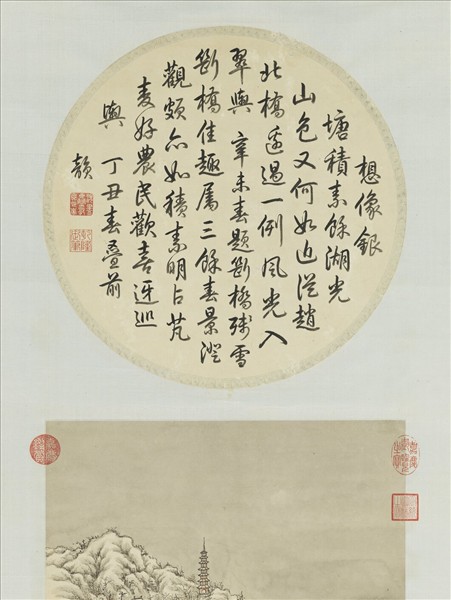 想像銀
塘積素餘湖光
山色又何如迫從趙
北橋邊過一例風光入
翠輿 辛未春題斷橋殘雪
斷橋佳趣屬三餘春景澄
觀頗亦如積素明占芃
麦好農民歡喜迓巡
輿 丁丑春疊前
韻